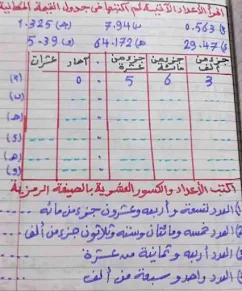 اقرأ الأعداد الآتية ثم اكتبها في جدول القيمة المنزلية
0.563 (أ 7.94 (ب 1.325 (ج
29.47 (د 64.172 (هـ 5.39 (و
جزء من ألف جزء من مائة جزء من عشرة . آحاد عشرات
(أ) 0 . 5 6 3
(ب)
(ج)
(د)
(هـ)
(و)
اكتب الأعداد والكسور العشرية بالصيغة الرمزية
العدد تسعة وأربعة وعشرون جزء من مائة
العدد خمسة ومائتان وستة وثلاثون جزء من ألف
العدد أربعة وثمانية من عشرة
العدد واحد وسبعة من ألف